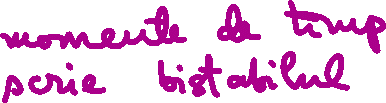 momente de timp
scrie bistabilul